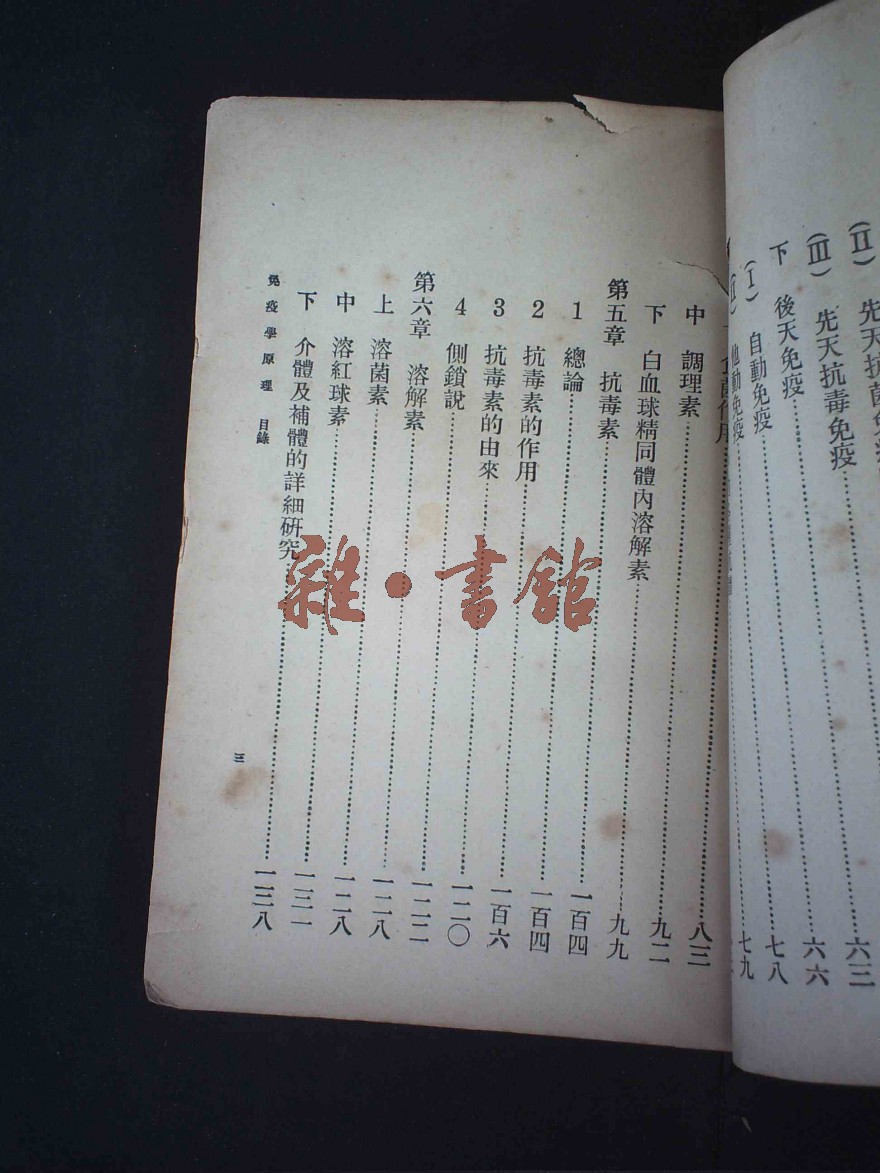 (II) 先天抗菌免疫……六三
(III) 先天抗毒免疫……六六
下 後天免疫……七八
(I) 自動免疫……七九
(II) 他動免疫……
菌作用……八三
中 調理素……九二
下 白血球精同體內溶解素……九九
第五章 抗毒素……一百四
1 總論……一百四
2 抗毒素的作用……一百六
3 抗毒素的由來……一二〇
4 側鎖說……一二二
第六章 溶解素……一二八
上 溶菌素……一二八
中 溶紅球素……一三一
下 介體及補體的詳細研究……一三八
免疫學原理 目錄 三
雜·書館